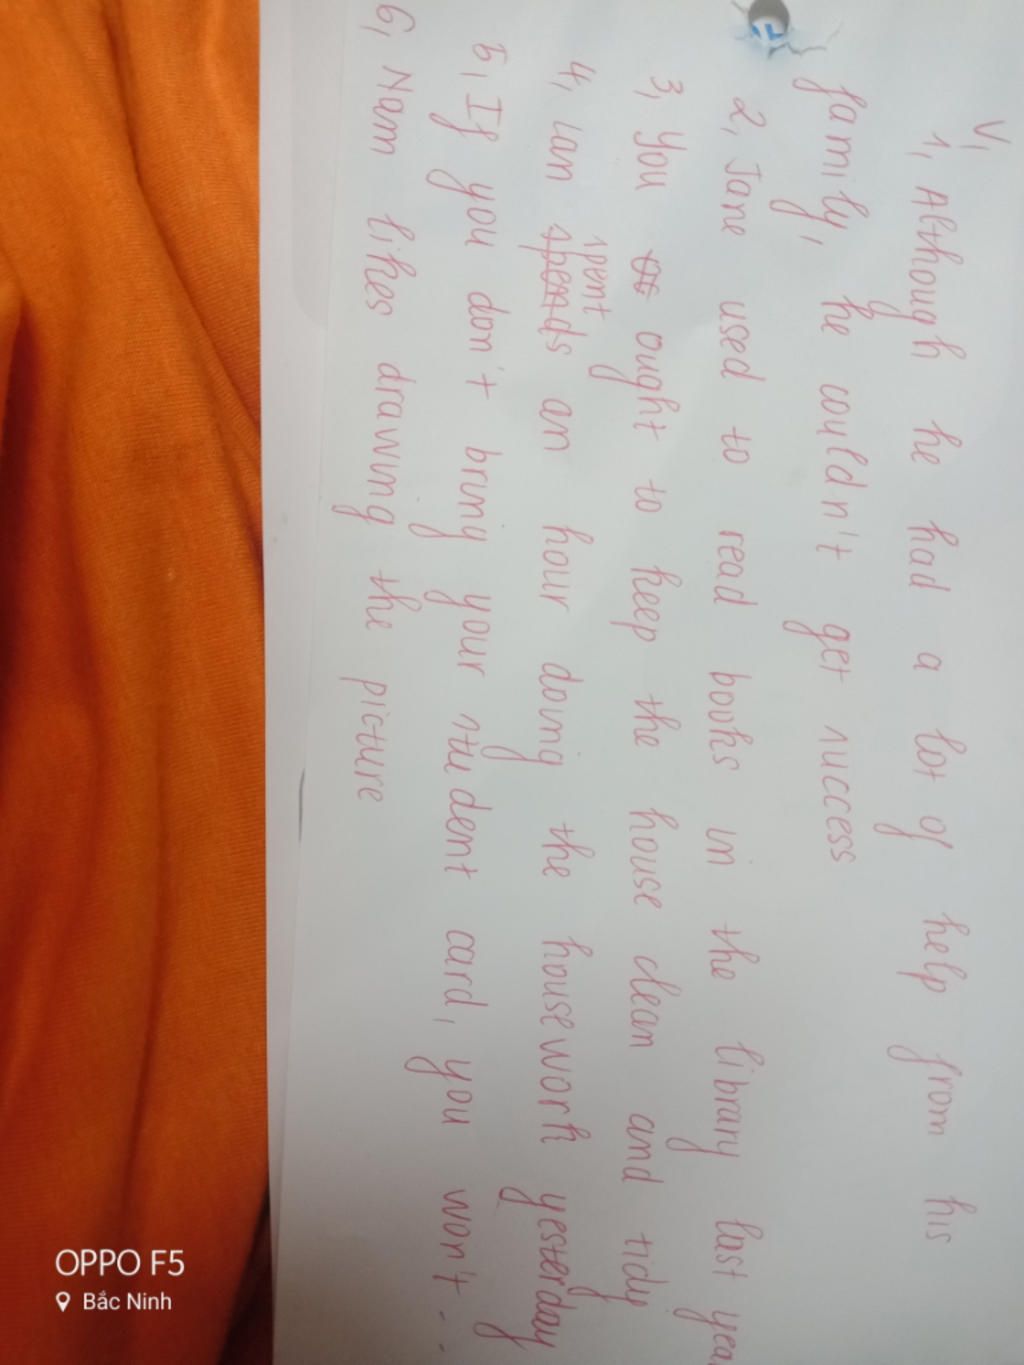 V,
1, Although he had a lot of help from his
family, he couldn't get success
2, Jane used to read books in the library last
3, You ought to keep the house clean and tidy
4, Lan spent an hour doing the housework yesterday
5, If you don't bring your student card, you won't ..
6, Nam likes drawing the picture
OPPO F5
Bắc Ninh